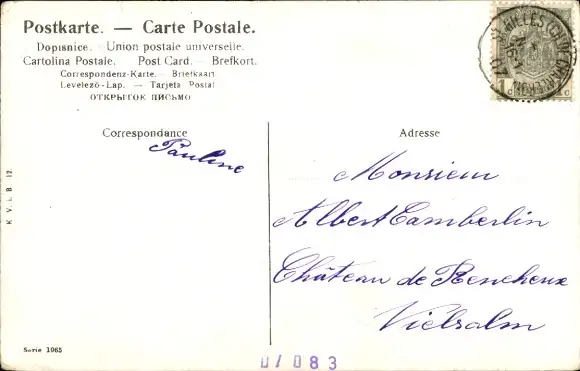 Postkarte. — Carte Postale.
Dopisnice. - Union postale universelle.
Cartolina Postale. Post Card. — Brefkort.
Correspondenz-Karte. — Briefkaart
Levelező-Lap. — Tarjeta Postal
ОТКРЫТОЕ ПИСЬМО
1c 1c
Correspondance
Pauline
Adresse
Monsieur
Albert Camberlin
Château de Rencheux
Vielsalm
K. V. i. B. 12.
Serie 1965
07083